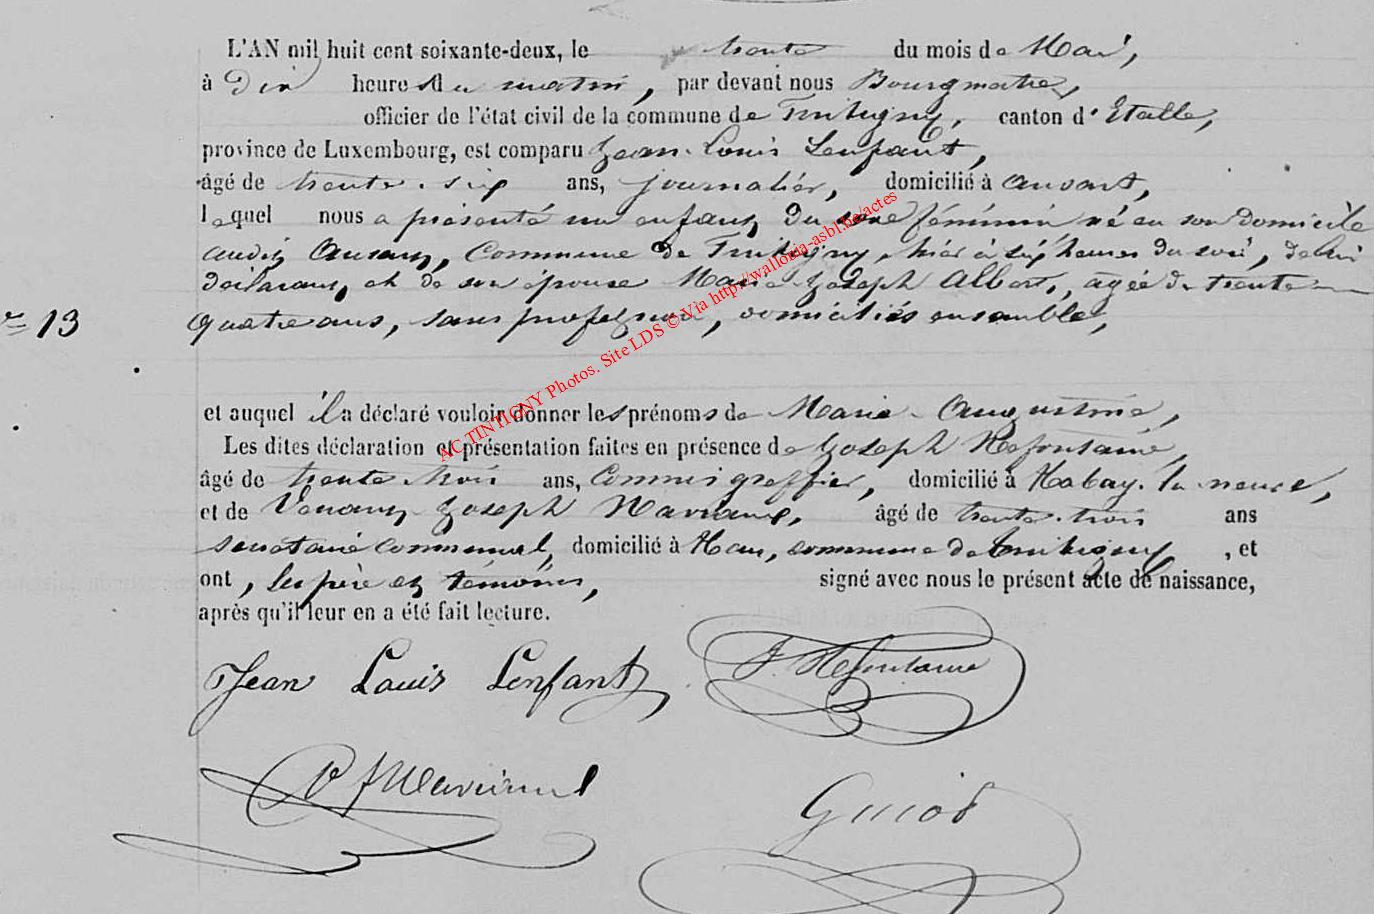 L'AN mil huit cent soixante-deux, le trente du mois de Mai,
à Dix heures du matin, par devant nous Bourgmatre,
officier de l'état civil de la commune de Tintigny, canton d'Etalle,
province de Luxembourg, est comparu Jean-Louis Lenfant,
âgé de trente-six ans, journalier, domicilié à Ansart,
lequel nous a présenté un enfant du sexe féminin né en son domicile
audit Ansart, Commune de Tintigny, hier à sept heures du soir, de lui
déclarant, et de son épouse Marie-Joseph Albert, agée de trente
N° 13 quatre ans, sans profession, domiciliés ensemble,
et auquel il a déclaré vouloir donner les prénoms de Marie-Augustine,
Les dites déclaration et présentation faites en présence de Joseph Hefontaine,
âgé de trente-trois ans, Commis greffier, domicilié à Habay-la-neuve,
et de Venant Joseph Maviane, âgé de trente-trois ans
secrétaire communal, domicilié à Han, commune de Tintigny, et
ont, les père et témoins, signé avec nous le présent acte de naissance,
après qu'il leur en a été fait lecture.
Jean Louis Lenfant J. Hefontaine
V J Guiot
AC TINTIGNY Photos. Site LDS © Via http://wallonia-asbl.be/actes